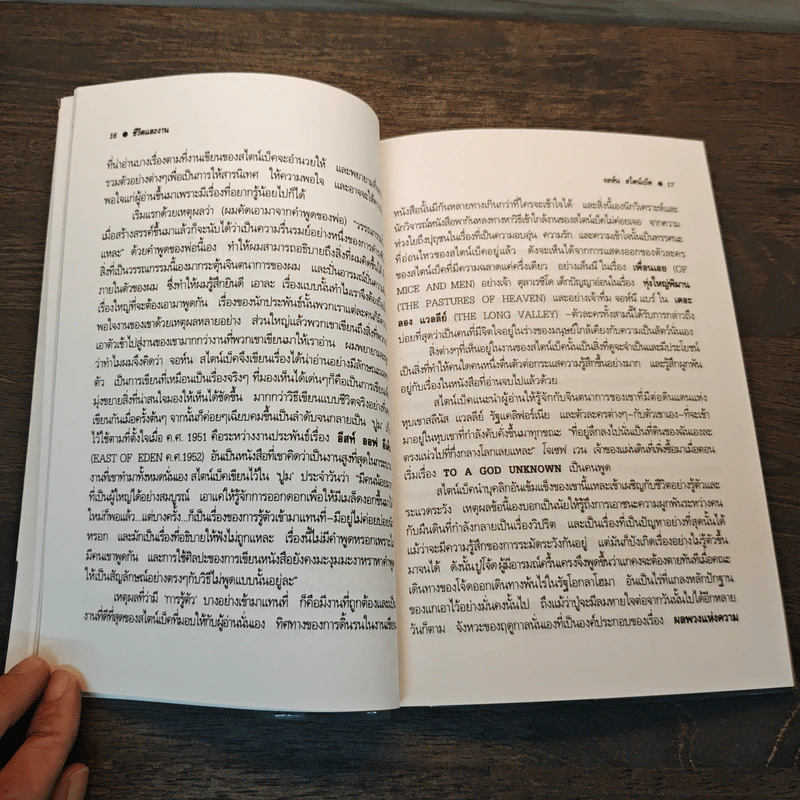 16 ● ชีวิตและงาน
ที่น่าอ่านบางเรื่องตามที่งานเขียนของสไตน์เบ็คจะอำนวยให้ และพยายามที่
รวมตัวอย่างต่างๆเพื่อเป็นการให้สารนิเทศ ความพอใจ และอาจจะได้
พอใจแก่ผู้อ่านขึ้นมาเพราะมีเรื่องที่อยากรู้น้อยไปก็ได้
เริ่มแรกด้วยเหตุผลว่า (ผมคัดเอามาจากคำพูดของพ่อ) "วรรณกรรม
เมื่อสร้างสรรค์ขึ้นมาแล้วก็จะนับได้ว่าเป็นความรื่นรมย์อย่างหนึ่งของการ
แหละ" ด้วยคำพูดของพ่อนี้เอง ทำให้ผมสามารถอธิบายถึงสิ่งที่ผมคิดขึ้น
สิ่งที่เป็นวรรณกรรมนี้เองมากระตุ้นจินตนาการของผม และปั่นอารมณ์
ภายในตัวของผม ซึ่งทำให้ผมรู้สึกยินดี เอาละ เรื่องแบบนั้นทำไมเราจึงต้อง
เรื่องใหญ่ที่จะต้องเอามาพูดกัน เรื่องของนักประพันธ์นั้นพวกเราแต่ละคนก็
พอใจงานของเขาด้วยเหตุผลหลายอย่าง ส่วนใหญ่แล้วพวกเขาเขียนถึงสิ่งที่
เอาตัวเข้าไปสู่งานของเขามากกว่างานที่พวกเขาเขียนมาให้เราอ่าน ผมพยายาม
ว่าทำไมผมจึงคิดว่า จอห์น สไตน์เบ็คจึงเขียนเรื่องได้น่าอ่านอย่างมีลักษณะ
ตัว เป็นการเขียนที่เหมือนเป็นเรื่องจริงๆ ที่มองเห็นได้เด่นๆก็คือเป็นการเขียน
มุ่งขยายสิ่งที่น่าสนใจมองให้เห็นได้ชัดขึ้น มากกว่าวิธีเขียนแบบชีวิตจริงอย่าง
เขียนกันเมื่อครั้งต้นๆ จากนั้นก็ค่อยๆเฉียบคมขึ้นเป็นลำดับจนกลายเป็น 'ปูม'
ไว้ใช้ตามที่ตั้งใจเมื่อ ค.ศ. 1951 คือระหว่างงานประพันธ์เรื่อง อีสท์ ออฟ
(EAST OF EDEN ค.ศ.1952) อันเป็นหนังสือที่เขาคิดว่าเป็นงานสูงที่สุดใน
งานที่เขาทำมาทั้งหมดนั่นเอง สไตน์เบ็คเขียนไว้ใน 'ปูม' ประจำวันว่า "มีคนน้อย
ที่เป็นผู้ใหญ่ได้อย่างสมบูรณ์ เอาแค่ให้รู้จักการออกดอกเพื่อให้มีเมล็ดงอกขึ้นมา
ใหม่ก็พอแล้ว...แต่บางครั้ง...ก็เป็นเรื่องของการรู้ตัวเข้ามาแทนที่–มีอยู่ไม่ค่อยบ่อย
หรอก และมักเป็นเรื่องที่อธิบายให้ฟังไม่ถูกแหละ เรื่องนี้ไม่มีคำพูดหรอกเพราะ
มีคนเขาพูดกัน และการใช้ศิลปะของการเขียนหนังสือยังคงมะงุมมะงาหราหาคำพูด
ให้เป็นสัญลักษณ์อย่างตรงๆกับวิธีไม่พูดแบบนั้นอยู่ละ"
เหตุผลที่ว่ามี 'การรู้ตัว' บางอย่างเข้ามาแทนที่ ก็คือมีงานที่ถูกต้องและ
งานที่ดีที่สุดของสไตน์เบ็คที่มอบให้กับผู้อ่านนั่นเอง ทิศทางของการดิ้นรนในงานเขียน
จอห์น สไตน์เบ็ค ● 17
หนังสือนั้นมีกันหลายทางเกินกว่าที่ใครจะเข้าใจได้ และสิ่งนี้เองนักวิเคราะห์และ
นักวิจารณ์หนังสือพากันหลงทางหาวิธีเข้าใกล้งานของสไตน์เบ็คไม่ค่อยเจอ จากความ
ห่วงใยถึงปุถุชนในเรื่องที่เป็นความอบอุ่น ความรัก และความเข้าใจนั้นเป็นทรรศนะ
ที่อ่อนไหวของสไตน์เบ็คอยู่แล้ว ดังจะเห็นได้จากการแสดงออกของตัวละคร
ของสไตน์เบ็คที่มีความฉลาดแค่ครึ่งเดียว อย่างเล้นนี ในเรื่อง เพื่อนเอย (OF
MICE AND MEN) อย่างเจ้า ตุลาเรซิโต เด็กปัญญาอ่อนในเรื่อง ทุ่งใหญ่พิมาน
(THE PASTURES OF HEAVEN) และอย่างเจ้าทึ่ม จอห์นี่ แบร์ ใน เดอะ
ลอง แวลลีย์ (THE LONG VALLEY) –ตัวละครทั้งสามนี้ได้รับการกล่าวถึง
บ่อยที่สุดว่าเป็นคนที่มีจิตใจอยู่ในร่างของมนุษย์ใกล้เคียงกับความเป็นสัตว์นั่นเอง
สิ่งต่างๆที่เห็นอยู่ในงานของสไตน์เบ็คนั้นเป็นสิ่งที่ดูจะจำเป็นและมีประโยชน์
เป็นสิ่งที่ทำให้คนใดคนหนึ่งตื่นตัวต่อกระแสความรู้สึกขึ้นอย่างมาก และรู้สึกผูกพัน
อยู่กับเรื่องในหนังสือที่อ่านจบไปแล้วด้วย
สไตน์เบ็คแนะนำผู้อ่านให้รู้จักกับจินตนาการของเขาที่มีต่อดินแดนแห่ง
หุบเขาสลีนัส แวลลีย์ รัฐแคลิฟอร์เนีย และตัวละครต่างๆ–กับตัวเขาเอง–ที่จะเข้า
มาอยู่ในหุบเขาที่กำลังคับคั่งขึ้นมาทุกขณะ "ที่อยู่ลึกลงไปนั่นเป็นที่ดินของฉันเองละ
ตรงแน่วไปที่กึ่งกลางโลกเลยแหละ" โจเซฟ เวน เจ้าของแผ่นดินที่เพิ่งซื้อมาเมื่อตอน
เริ่มเรื่อง TO A GOD UNKNOWN เป็นคนพูด
สไตน์เบ็คนำบุคลิกอันเข้มแข็งของเขานี้แหละเข้าเผชิญกับชีวิตอย่างรู้ตัวและ
ระแวดระวัง เหตุผลข้อนี้เองบอกเป็นนัยให้รู้ถึงการเอาชนะความผูกพันระหว่างคน
กับผืนดินที่กำลังกลายเป็นเรื่องวิปริต และเป็นเรื่องที่เป็นปัญหาอย่างที่สุดนั้นได้
แม้ว่าจะมีความรู้สึกของการระมัดระวังกันอยู่ แต่มันก็บังเกิดเรื่องอย่างไม่รู้ตัวขึ้น
มาจนได้ ดังนั้นปู่โจ้ดผู้มีอารมณ์ครื้นเครงจึงพูดขึ้นว่าแกคงจะต้องตายทันทีเมื่อคณะ
เดินทางของโจ้ดออกเดินทางพ้นไร่ในรัฐโอกลาโฮมา อันเป็นไร่ที่แกลงหลักปักฐาน
ของแกเอาไว้อย่างมั่นคงนั้นไป ถึงแม้ว่าปู่จะมีลมหายใจต่อจากวันนั้นไปได้อีกหลาย
วันก็ตาม จังหวะของฤดูกาลนั่นเองที่เป็นองค์ประกอบของเรื่อง ผลพวงแห่งความ